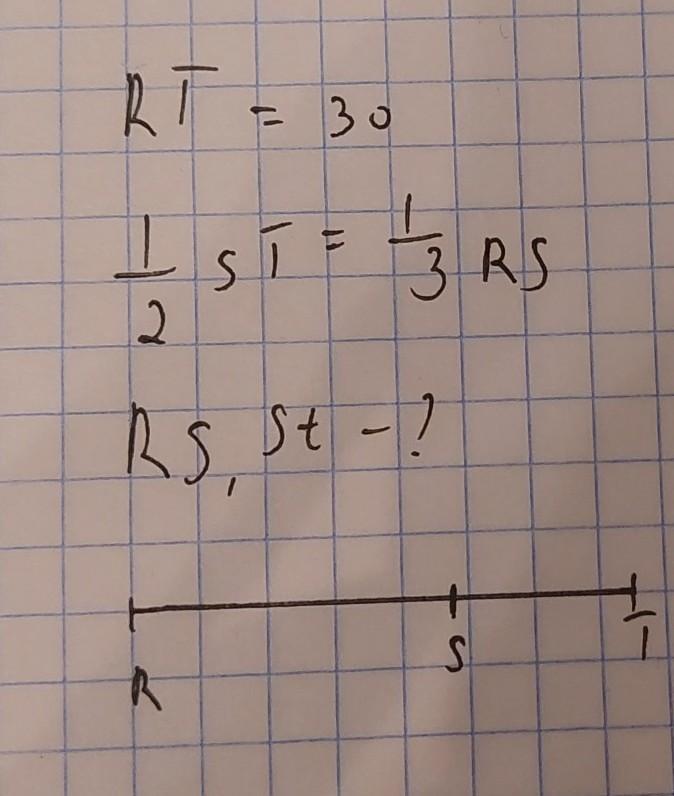 RT = 30
1/2 ST = 1/3 RS
RS, St - ?
R S T